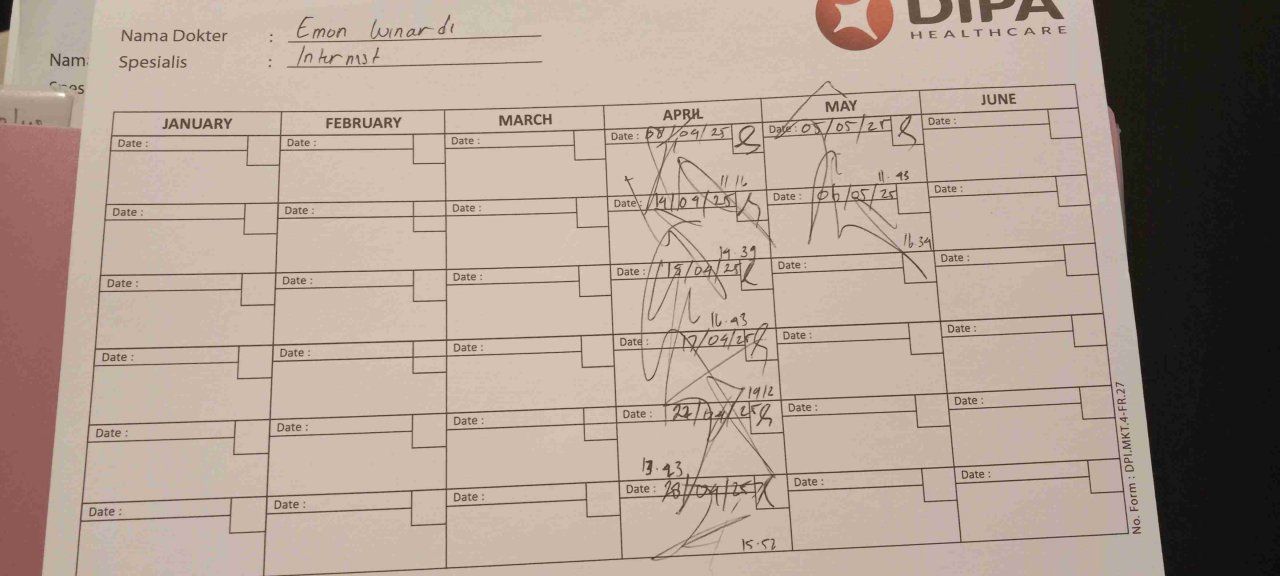 DIPA
HEALTHCARE
Nama Dokter : Emon Winardi
Nam
Spesialis : Internist
JANUARY FEBRUARY MARCH APRIL MAY JUNE
Date : Date : Date : Date : 08/04/25 Date : 05/05/25 Date :
11 16 11.43
Date : Date : Date : Date : 14/04/25 Date : 06/05/25 Date :
19.39 16 34
Date : Date : Date : Date : 15/04/25 Date : Date :
16.43
Date : Date : Date : Date : 17/04/25 Date : Date :
1912
Date : Date : Date : Date : 22/04/25 Date : Date :
13.43
Date : Date : Date : Date : 28/04/25 Date : Date :
15.52
No. Form : DPI.MKT.4-FR.27